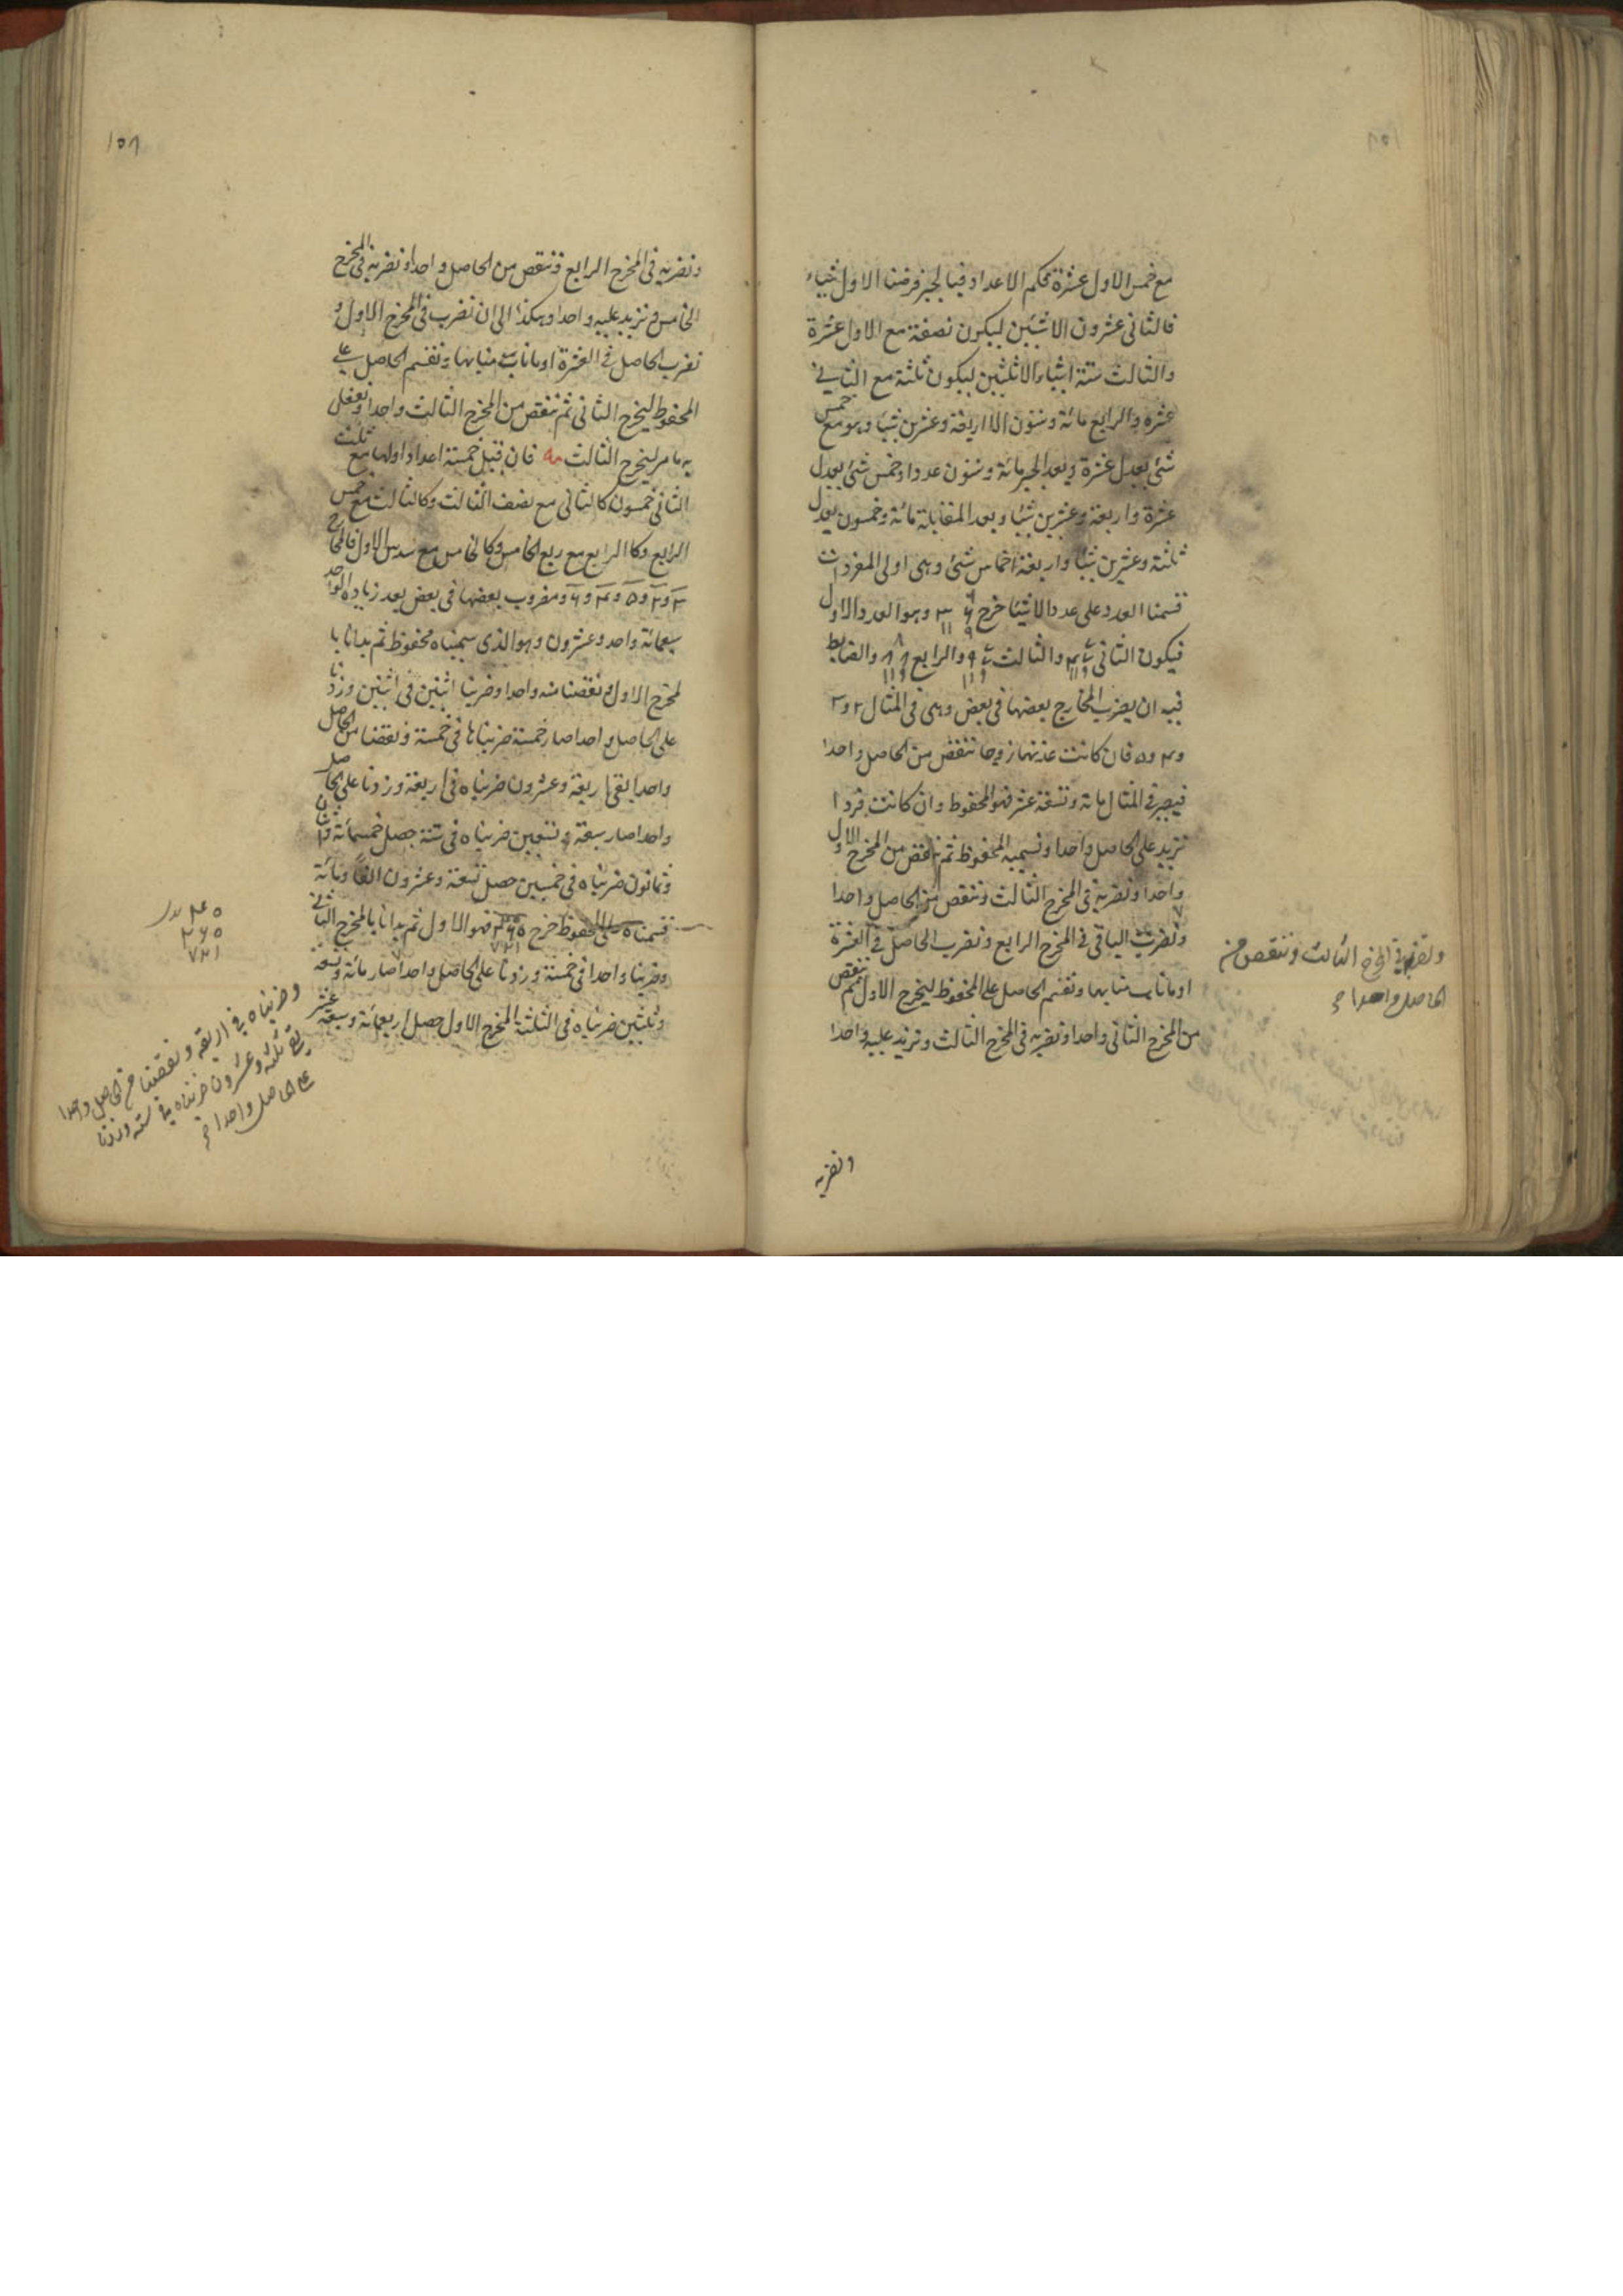 مع خمس الاول عشرة فكم الاعداد فبالجبر فرضنا الاول شياء
فالثانى عشرون الا شيئين ليكون نصفه مع الاول عشرة
والثالث ستة اشياء الا ثلثين ليكون ثلثه مع الثانى
عشرة والرابع مائة وستون الا اربعة وعشرين شيئا وهو مع خمس
شئ يعدل عشرة وبعد الجبر مائة وستون عددا وخمس شئ يعدل
عشرة واربعة وعشرين شيئا وبعد المقابلة مائة وخمسون يعدل
ثلثة وعشرين شيئا واربعة اخماس شئ وهى اولى المفردات
قسمنا العدد على عدد الاشياء خرج وهو العدد الاول
فيكون الثانى والثالث والرابع والضابط
فيه ان يضرب المخارج بعضها فى بعض وهى فى المثال ٢ و ٣
و ۴ و ٥ فان كانت عدتها زوجا تنقص من الحاصل واحدا
فيصير فى المثال مائة وتسعة عشر فهو المحفوظ وان كانت فردا
تزيد على الحاصل واحدا وتسميه المحفوظ ثم تنقص من المخرج الاول
واحدا وتضربه فى المخرج الثالث وتنقص من الحاصل واحدا
وتضرب الباقى فى المخرج الرابع وتضرب الحاصل فى العشرة
او ما ناب منابها وتقسم الحاصل على المحفوظ ليخرج الاول ثم تنقص
من المخرج الثانى واحدا وتضربه فى المخرج الثالث وتزيد عليه واحدا
وتضربه فى المخرج الثالث وتنقص من
الحاصل واحدا
وتضربه
١٥٨
وتضربه فى المخرج الرابع وتنقص من الحاصل واحدا وتضربه فى المخرج
الخامس وتزيد عليه واحدا وهكذا الى ان تضرب فى المخرج الاول و
تضرب الحاصل فى العشرة او ما ناب منابها وتقسم الحاصل على
المحفوظ ليخرج الثانى ثم تنقص من المخرج الثالث واحدا وتفعل
به ما مر ليخرج الثالث فان قيل خمسة اعداد اولها مع ثلث
الثانى خمسون كالثانى مع نصف الثالث وكالثالث مع خمس
الرابع وكالرابع مع ربع الخامس وكالخامس مع سدس الاول فالمخارج
٣ و ٢ و ٥ و ۴ و ٦ ومضروب بعضها فى بعض بعد زيادة الواحد
سبعمائة واحد وعشرون وهو الذى سميناه محفوظ ثم بدانا با
لمخرج الاول ونقصنا منه واحدا وضربنا اثنين فى اثنين وزدنا
على الحاصل واحدا صار خمسة ضربناها فى خمسة ونقصنا من الحاصل
واحدا بقى اربعة وعشرون ضربناه فى اربعة وزدنا على الحاصل
واحدا صار سبعة وتسعين ضربناه فى ستة حصل خمسمائة واثنان
وثمانون ضربناه فى خمسين حصل تسعة وعشرون الفا ومائة
قسمناه على المحفوظ خرج فهو الاول ثم بدانا بالمخرج الثانى
وضربنا واحدا فى خمسة وزدنا على الحاصل واحدا صار مائة وتسعة
وثلثين ضربناه فى الثلثة المخرج الاول حصل اربعمائة وسبعة عشر
٢٦٥
٧٢١
وضربناه فى اربعة ونقصنا من الحاصل واحدا
بقى ثلثة وعشرون ضربناه فى ستة وزدنا
على الحاصل واحدا